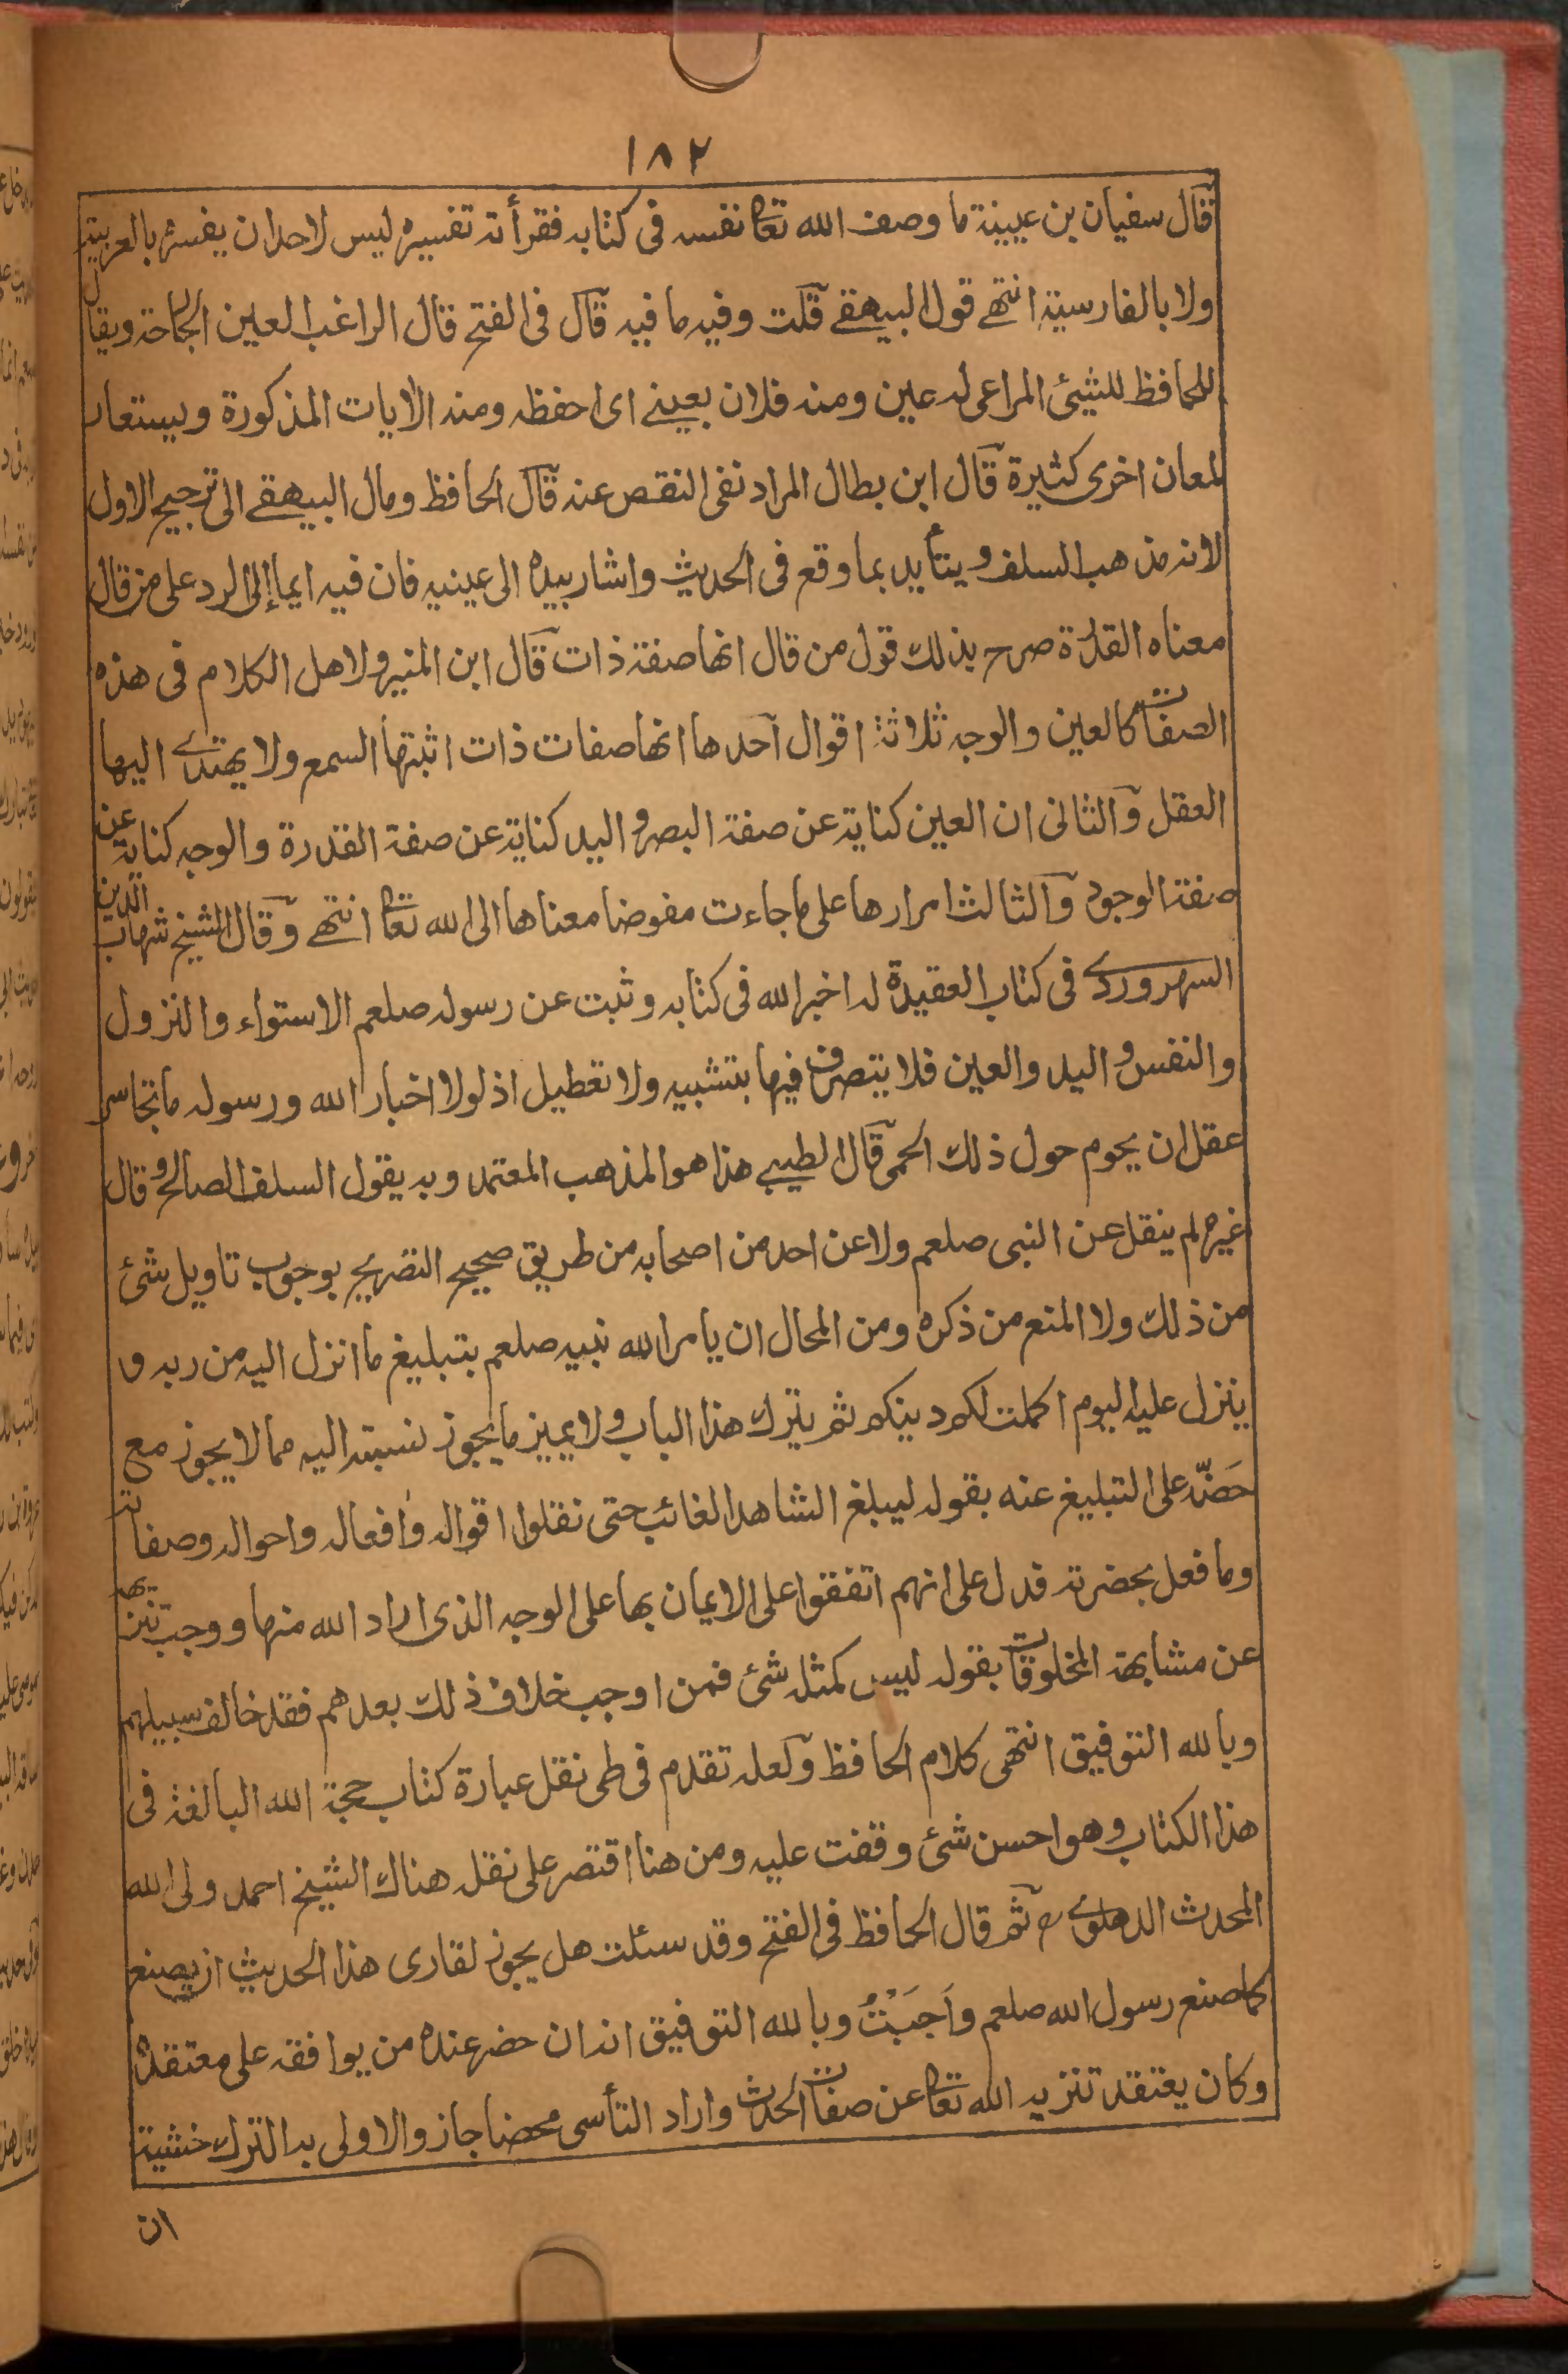 ١٨٢
قال سفيان بن عيينة ما وصف الله تعا نفسه فى كتابه فقرأته تفسيره ليس لاحد ان يفسره بالعربية
ولا بالفارسية انتهے قول البيهقے قلت وفيه ما فيه قال فى الفتح قال الراغب العين الجارحة ويقال
للحافظ للشيئ المراعى له عين ومنه فلان بعينے اى احفظه ومنه الايات المذكورة ويستعار
لمعان اخرى كثيرة قال ابن بطال المراد نفى النقص عنه قال الحافظ ومال البيهقے الى ترجيح الاول
لانه مذهب السلف ويتأيد بما وقع فى الحديث واشار بيده الى عينيه فان فيه ايما إلى الرد على من قال
معناه القدرة صرح بذلك قول من قال انها صفة ذات قال ابن المنير ولاهل الكلام فى هذه
الصفات كالعين والوجه ثلاثة اقوال احدها انها صفات ذات اثبتها السمع ولا يهتدے اليها
العقل والثانى ان العين كناية عن صفة البصر واليد كناية عن صفة القدرة والوجه كناية عن
صفة الوجود والثالث امرارها على ما جاءت مفوضا معناها الى الله تعا انتهے وقال الشيخ شهاب الدين
السهروردے فى كتاب العقيدة له اخبر الله فى كتابه وثبت عن رسوله صلعم الاستواء والنزول
والنفس واليد والعين فلا يتصرف فيها بتشبيه ولا تعطيل اذ لولا اخبار الله ورسوله ما تجاسر
عقل ان يحوم حول ذلك الحمى قال الطيبے هذا هو المذهب المعتمد وبه يقول السلف الصالح وقال
غيره لم ينقل عن النبى صلعم ولا عن احد من اصحابه من طريق صحيح التصريح بوجوب تاويل شئ
من ذلك ولا المنع من ذكره ومن المحال ان يامر الله نبيه صلعم بتبليغ ما انزل اليه من ربه و
ينزل عليه اليوم اكملت لكم دينكم ثم يترك هذا الباب ولا يميز ما يجوز نسبته اليه مما لا يجوز مع
حَضّه على التبليغ عنه بقوله ليبلغ الشاهد الغائب حتى نقلوا اقواله وافعاله واحواله وصفاته
وما فعل بحضرته فدل على انهم اتفقوا على الايمان بها على الوجه الذى اراد الله منها ووجب تنزيهه
عن مشابهة المخلوقات بقوله ليس كمثله شئ فمن اوجب خلاف ذلك بعدهم فقد خالف سبيلهم
وبالله التوفيق انتهى كلام الحافظ ولعله تقدم فى طى نقل عبارة كتاب حجة الله البالغة فى
هذا الكتاب وهو احسن شئ وقفت عليه ومن هنا اقتصر على نقله هناك الشيخ احمد ولى الله
المحدث الدهلوے رح ثم قال الحافظ فى الفتح وقد سئلت هل يجوز لقارى هذا الحديث ان يصنع
كما صنع رسول الله صلعم وأَجَبْتُ وبالله التوفيق انه ان حضر عنده من يوافقه على معتقده
وكان يعتقد تنزيه الله تعا عن صفات الحدث واراد التأسى محضا جاز والاولى به الترك خشية
ان